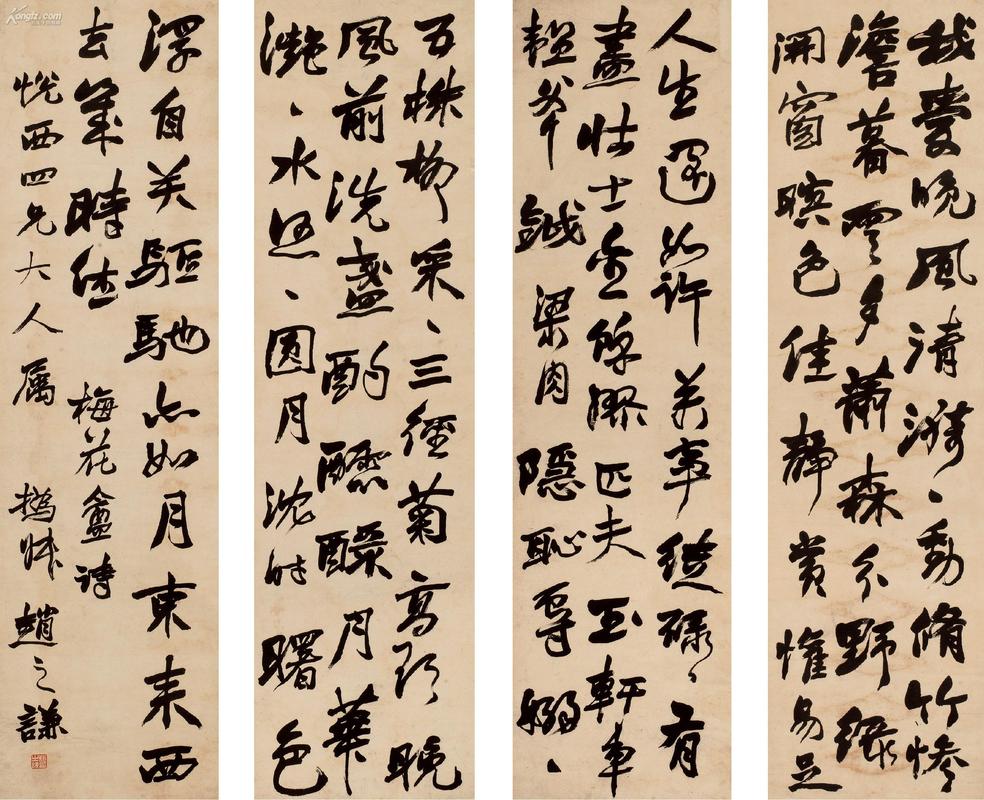 我愛晚風清漪、動脩竹慘
澹暮雲多蕭森分野綠
開窗暝色佳靜賞懽易足
人生適如許萬事縱碌、有
盡壯士金餘繆匹夫玉軒車
韜斧鉞粱肉隱恥辱嫋、
五株柳采、三徑菊高歌晚
風前洗盞酌醽醁月華
灔、水悠、圓月沈時曙色
浮自笑驅馳亦如月東來西
去幾時休 梅花盦詩
悅西四兄大人屬 撝叔趙之謙
Kongfz.com